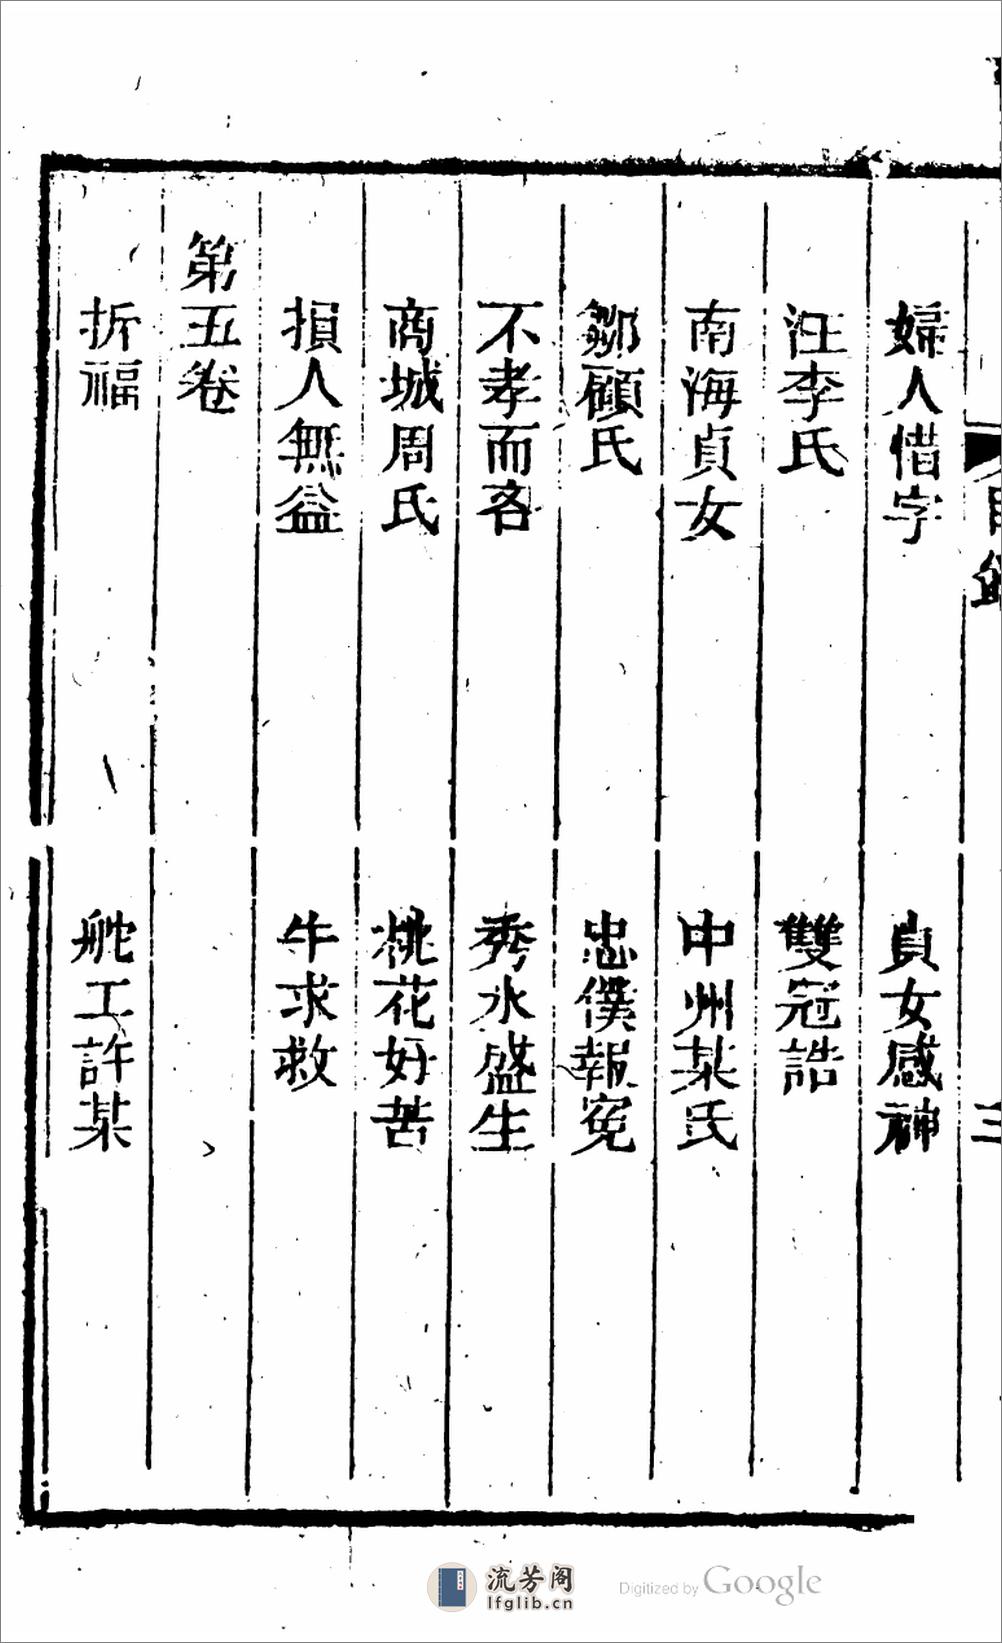 目錄
三
婦人惜字
貞女感神
汪李氏
雙冠誥
南海貞女
中州某氏
鄒顧氏
忠僕報冤
不孝而吝
秀水盛生
商城周氏
桃花好苦
損人無益
牛求救
第五卷
折福
舵工許某
流芳阁
lfglib.cn
Digitized by Google